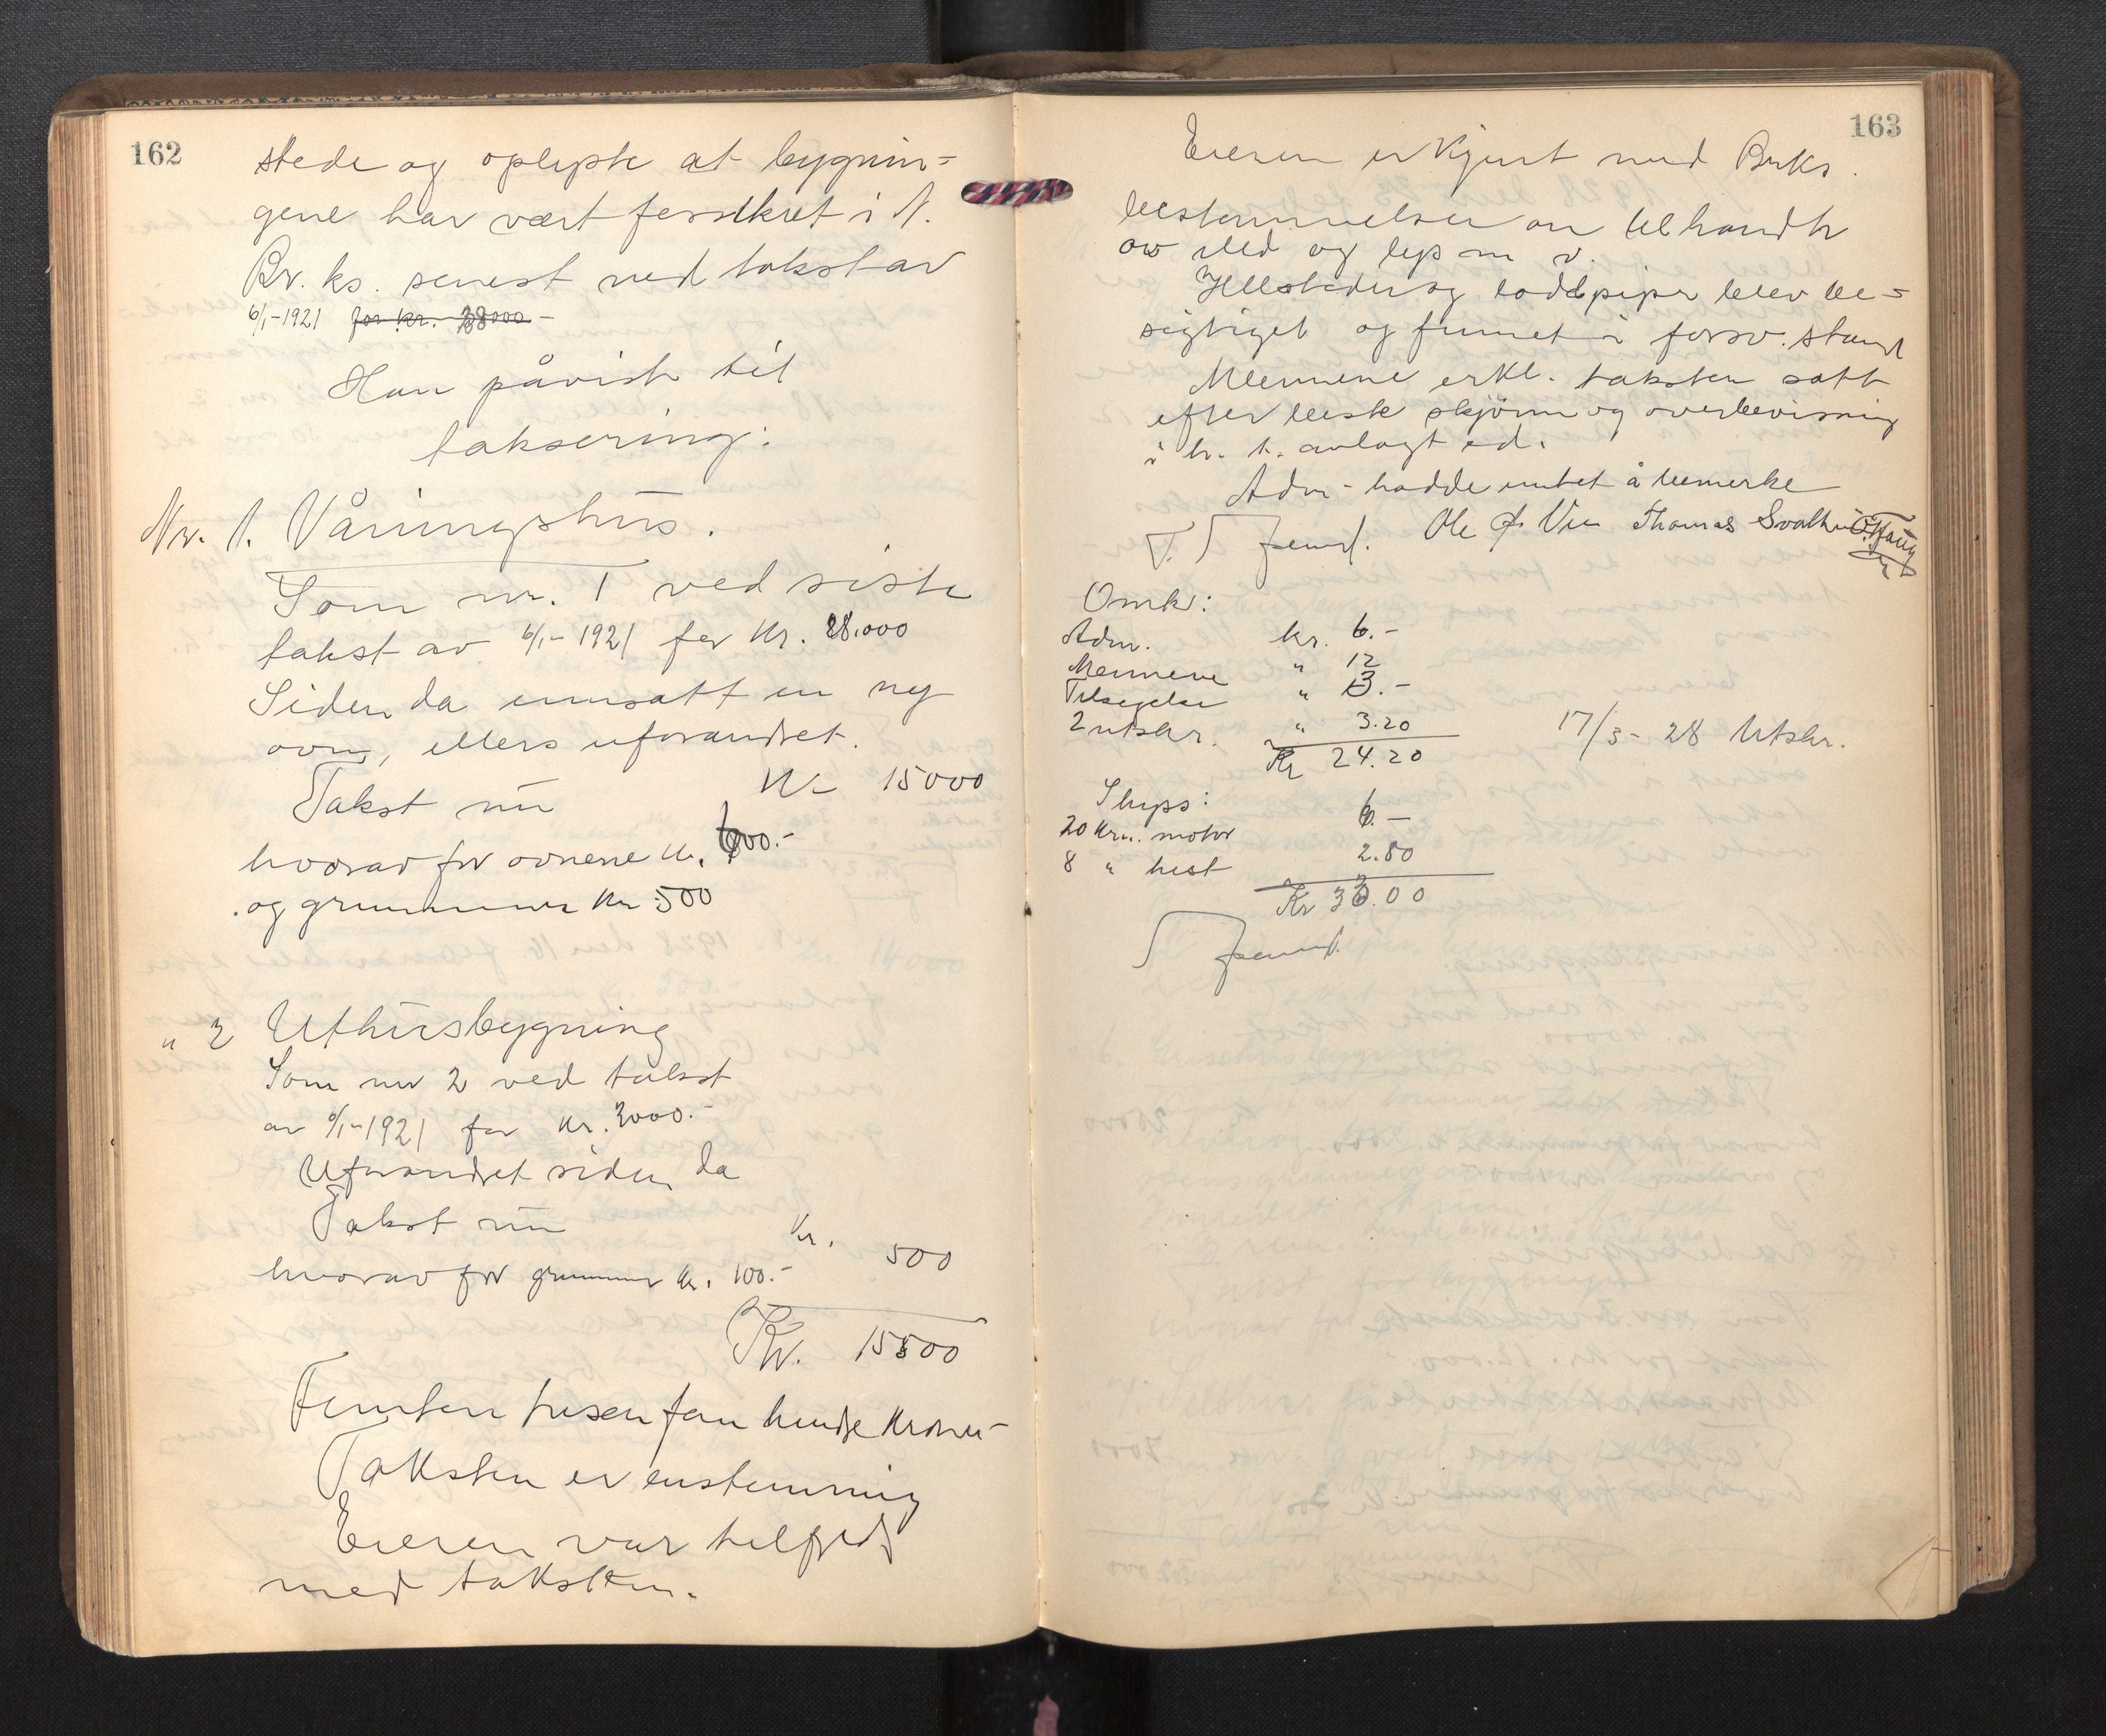 162
stede og oplyste at bygnin=
gene har vært forsikret i N.
Br. ks. senest ved takst av
6/1-1921 for kr. 28000 -
Han påviste til
taksering:
Nr. 1. Våningshus.
Som nr. 1 ved siste
takst av 6/1- 1921 for kr. 28.000
Siden da innsatt en ny
ovn, ellers uforandret.
Takst nu Kr 15000
hvorav for ovnene kr. 600.-
og grunnmur kr 500
" 2 Uthusbygning
Som nr 2 ved takst
av 6/1-1921 for kr. 3000.-
Uforandret siden da
Takst nu Kr. 500
hvorav for grunnmur kr. 100.-
Kr. 15500
Femten tusen fem hundre kroner
Taksten er enstemmig
Eieren var tilfreds
med taksten.
163
Eieren er kjent med Brks.
bestemmelser om behandl
av ild og lys m v.
Ildsteder og loddpiper blev be=
sigtiget og funnet i forsv. stand
Mennene erkl. taksten satt
efter beste skjønn og overbevisning
i h. t. avlagt ed.
Adm- hadde intet å bemerke
Ole Vee Thomas
Omk:
Adm. kr. 6.-
Mennene " 12
Tilsigelse " 3.-
2 utskr. " 3.20
Kr 24.20
17/3- 28 Utskr.
Skyss:
20 km. motor 6.-
8 " hest 2.80
Kr 33.00